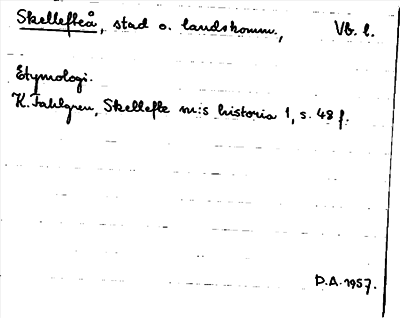 Skellefteå, stad o. landskomm., Vb. l.
Etymologi.
K. Fahlgren, Skellefte m:s historia 1, s. 48 f.
D.A. 1957.